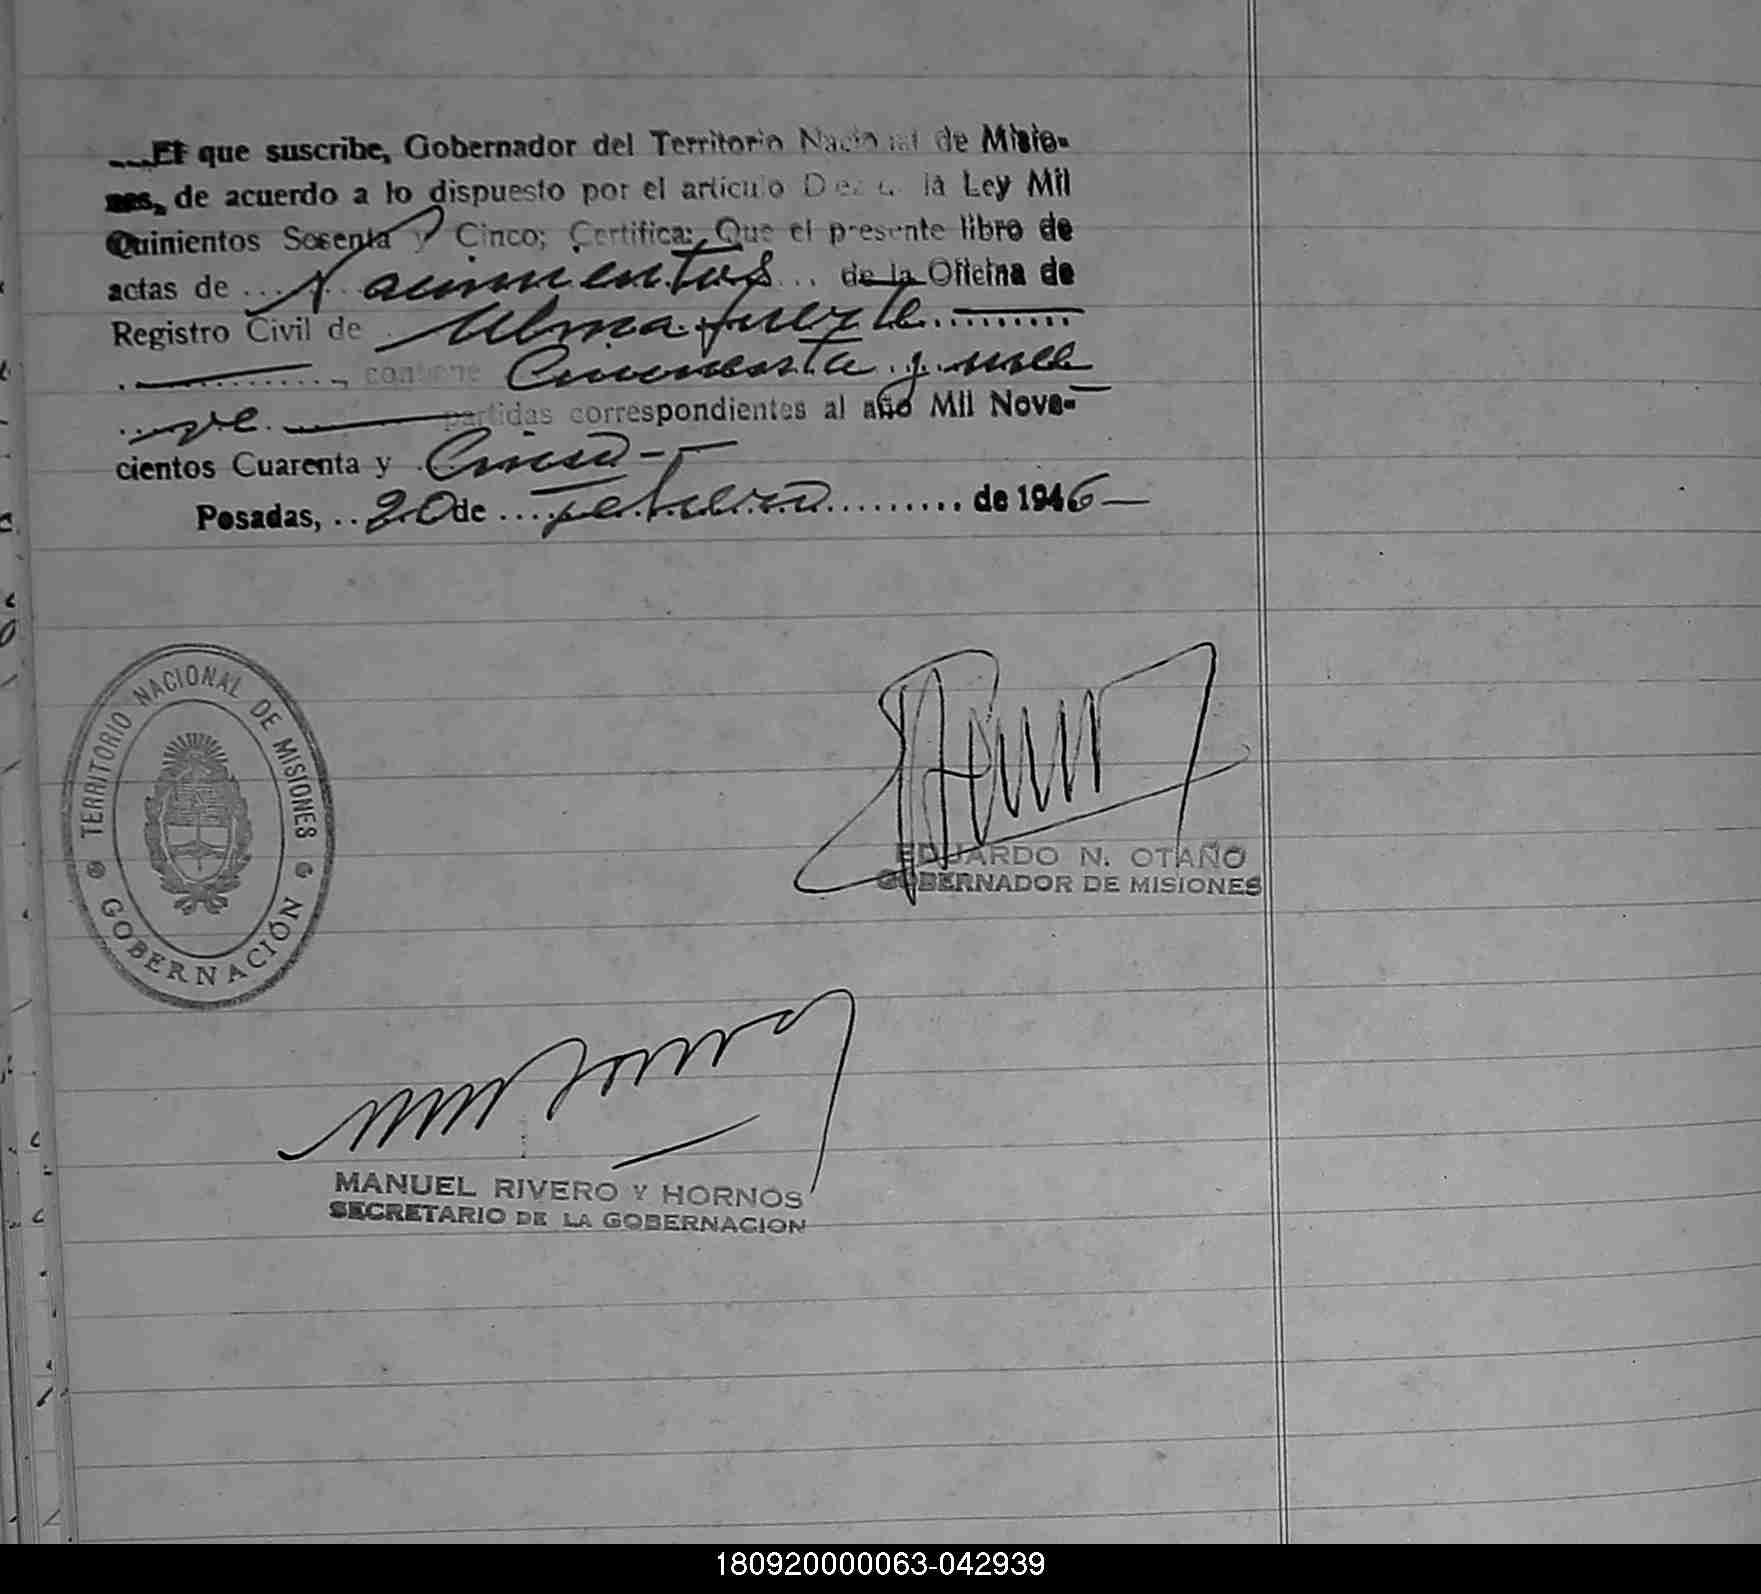 El que suscribe, Gobernador del Territorio Nacional de Misio-
nes, de acuerdo a lo dispuesto por el artículo la Ley Mil
Quinientos Sesenta y Cinco; Certifica: Que el presente libro de
actas de ... Nacimientos ... de la Oficina de
Registro Civil de . Almafuerte ..........
............, contiene Cincuenta y nue
ve. partidas correspondientes al año Mil Nove-
cientos Cuarenta y Cinco--
Posadas, ..20 de ... Febrero ......... de 1946-
TERRITORIO NACIONAL DE MISIONES
GOBERNACIÓN
EDUARDO N. OTAÑO
GOBERNADOR DE MISIONES
MANUEL RIVERO Y HORNOS
SECRETARIO DE LA GOBERNACION
180920000063-042939